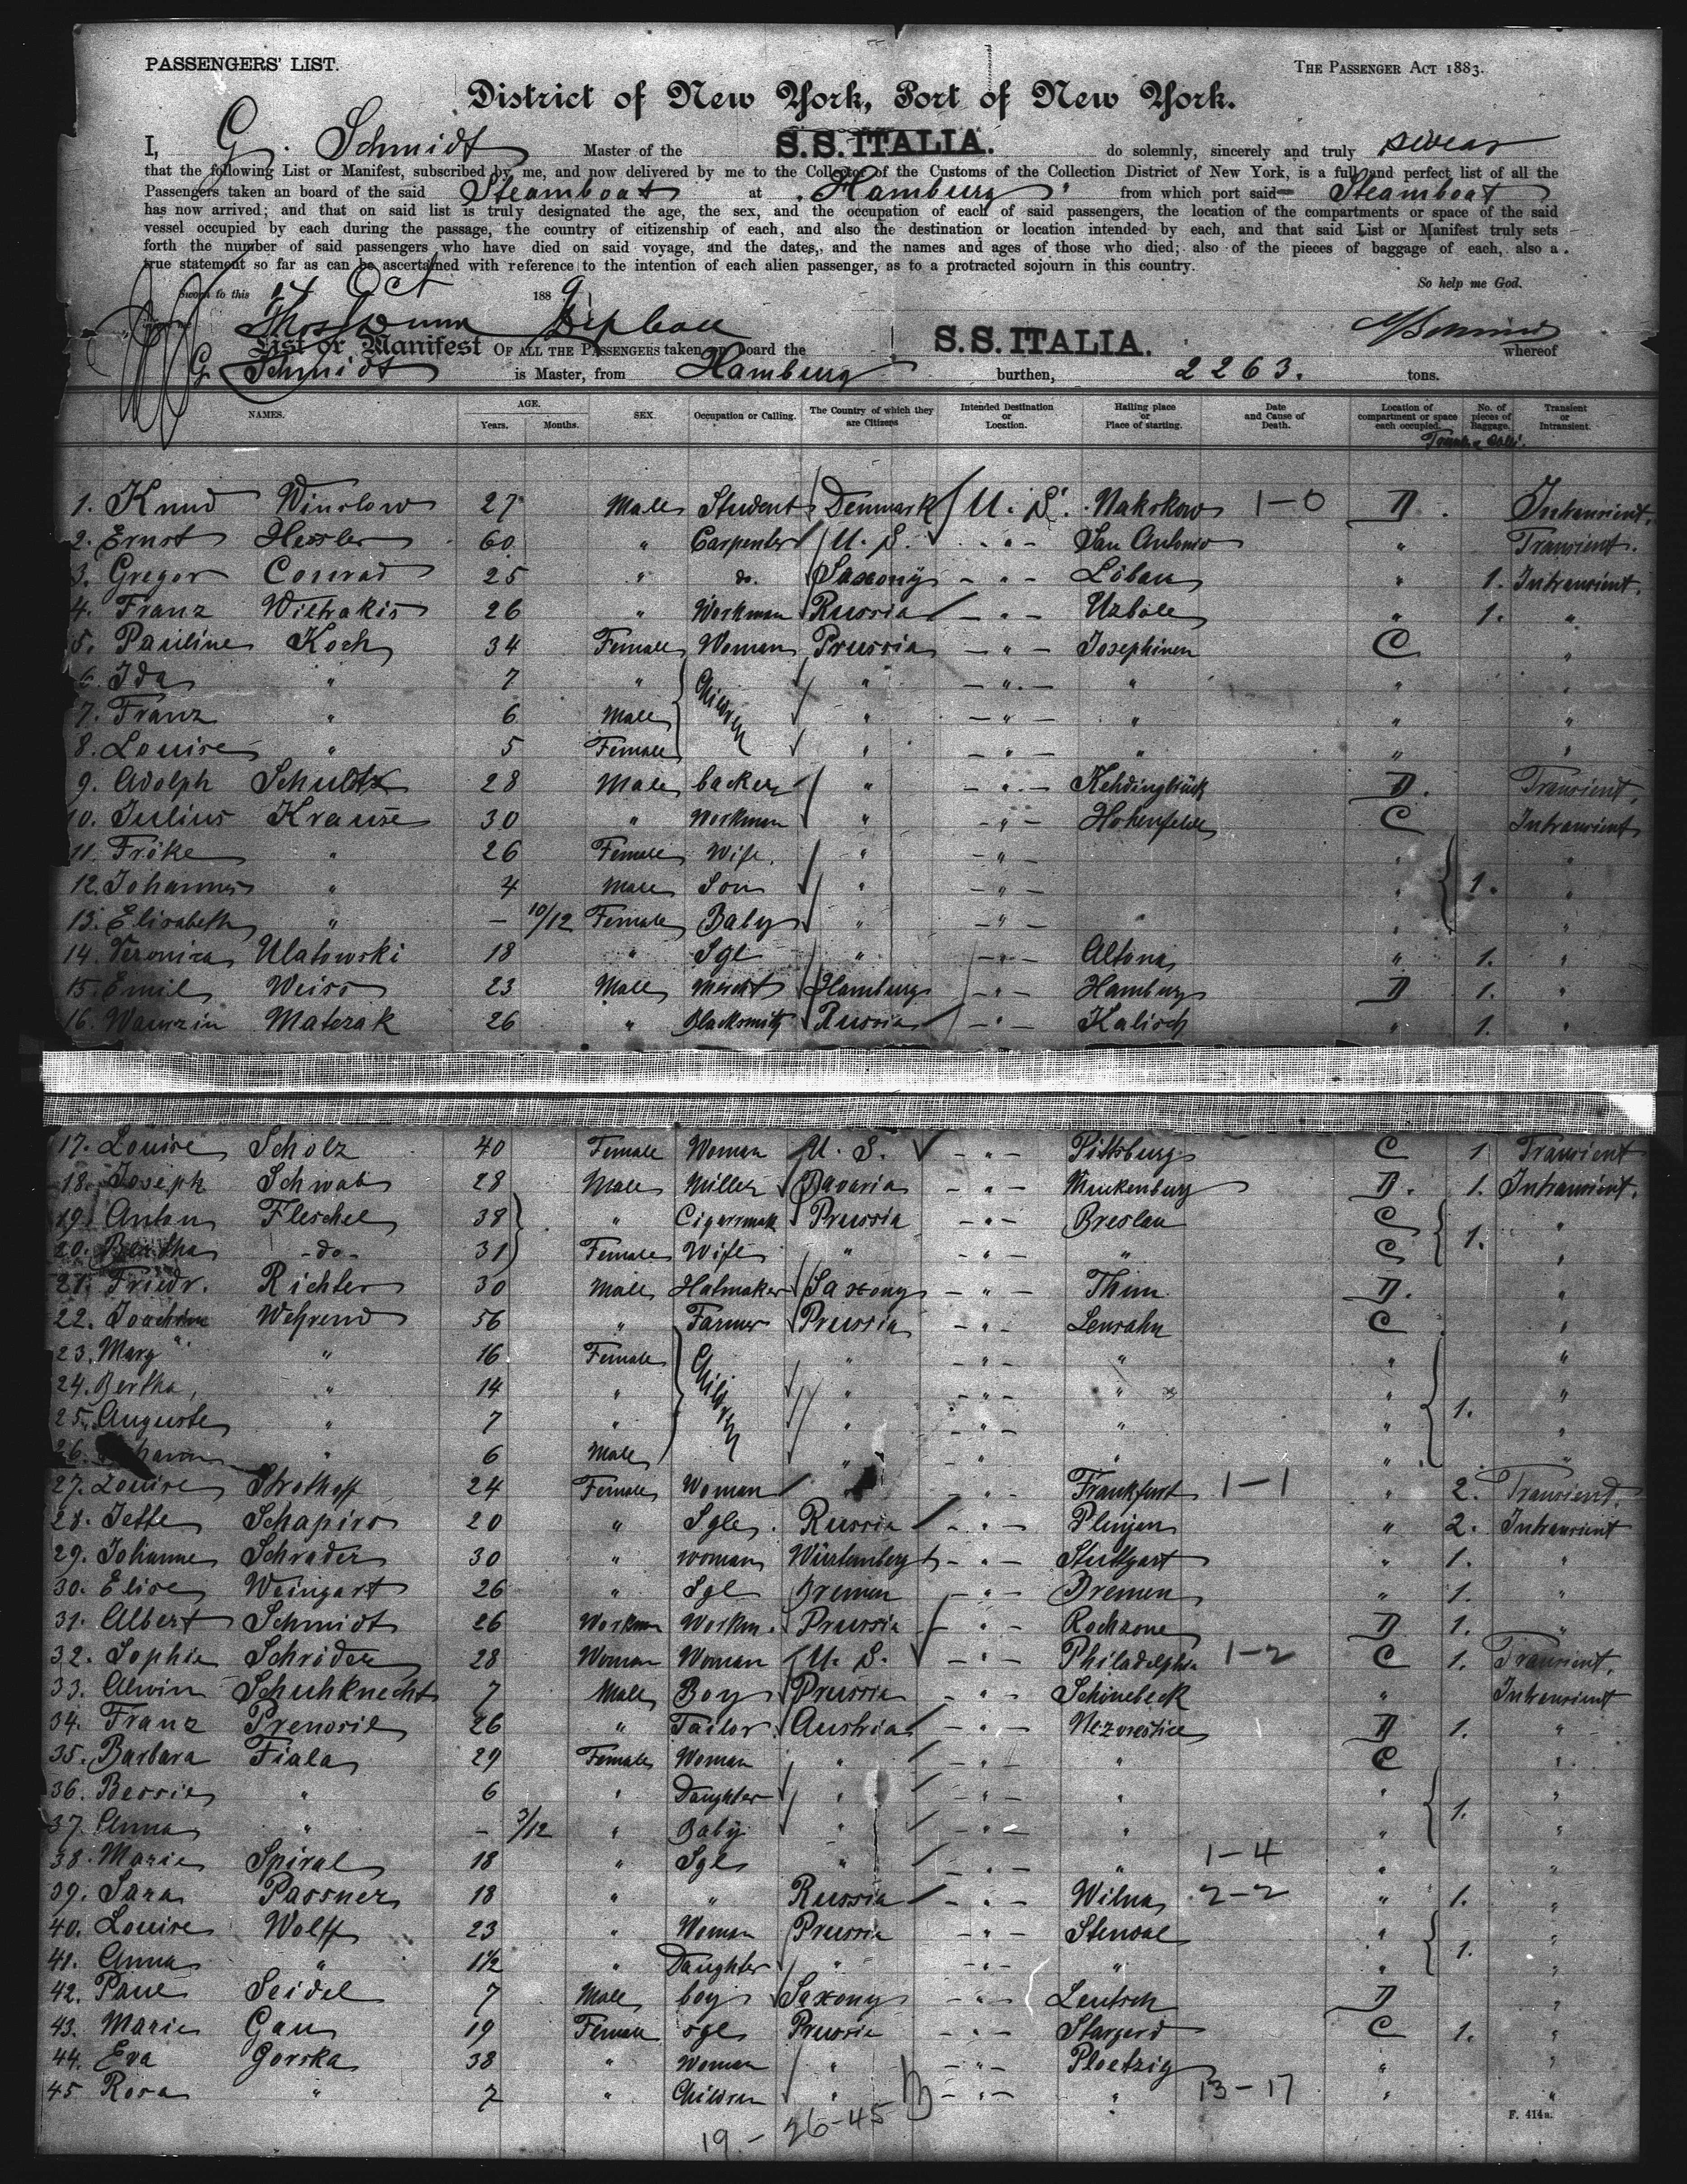 PASSENGERS' LIST.
THE PASSENGER ACT 1883.
District of New York, Port of New York.
I, G. Schmidt Master of the S.S. ITALIA. do solemnly, sincerely and truly swear
that the following List or Manifest, subscribed by me, and now delivered by me to the Collector of the Customs of the Collection District of New York, is a full and perfect list of all the
Passengers taken an board of the said Steamboat at Hamburg from which port said Steamboat
has now arrived; and that on said list is truly designated the age, the sex, and the occupation of each of said passengers, the location of the compartments or space of the said
vessel occupied by each during the passage, the country of citizenship of each, and also the destination or location intended by each, and that said List or Manifest truly sets
forth the number of said passengers who have died on said voyage, and the dates, and the names and ages of those who died; also of the pieces of baggage of each, also a
true statement so far as can be ascertained with reference to the intention of each alien passenger, as to a protracted sojourn in this country.
So help me God.
Sworn to this Oct 1889
List or Manifest OF ALL THE PASSENGERS taken on board the S.S. ITALIA. whereof
G. Schmidt is Master, from Hamburg burthen, 2263. tons.
NAMES. AGE. Years. Months. SEX. Occupation or Calling. The Country of which they are Citizens Intended Destination or Location. Hailing place or Place of starting. Date and Cause of Death. Location of compartment or space each occupied. No. of pieces of Baggage. Transient or Intransient.
1. Knud Winslow 27 Male Student Denmark U. S. Nakskow 1-0 D. Intransient.
2. Ernst Hessler 60 " Carpenter U. S. - " - San Antonio " Transient.
3. Gregor Conrad 25 " do. Saxony - " - Löbau " 1. Intransient.
4. Franz Witrakis 26 " Workman Russia - " - Uzbole " 1. "
5. Pauline Koch 34 Female Woman Prussia - " - Josephinen C "
6. Ida " 7 " Children " - " - " " "
7. Franz " 6 Male " - " - " " "
8. Louise " 5 Female " - " - " " "
9. Adolph Schultz 28 Male backer " - " - Kehdingbrück D. Transient.
10. Julius Krause 30 " Workman " - " - Hohenfelde C Intransient
11. Fröke " 26 Female Wife. " - " - " "
12. Johannes " 4 Male Son " - " - " 1. "
13. Elisabeth " - 10/12 Female Baby " - " - " "
14. Veronica Ulatowski 18 " Sgl " - " - Altona " 1. "
15. Emil Weiss 23 Male Mercht Hamburg - " - Hamburg D 1. "
16. Wawrzin Materak 26 " Blacksmith Russia - " - Kalisch " 1. "
17. Louise Scholz 40 Female Woman U. S. - " - Pittsburg C 1 Transient
18. Joseph Schwab 28 Male Miller Bavaria - " - Muckenburg D. 1. Intransient.
19. Anton Fleschel 38 " Cigarrmak Prussia - " - Breslau C 1. "
20. Bertha -do- 31 Female Wife " - " - " C "
21. Friedr. Richter 30 Male Hatmaker Saxony - " - Thum D. "
22. Joachim Wehrend 56 " Farmer Prussia - " - Lensahn C "
23. Mary " 16 Female Children " - " - " " "
24. Bertha, " 14 " " - " - " " "
25. Auguste " 7 " " - " - " " 1. "
26. " 6 Male " - " - " " "
27. Louise Strothoff 24 Female Woman - " - Frankfurt 1-1 " 2. Transient.
28. Jette Schapiro 20 " Sgle. Russia - " - Plunjen " 2. Intransient
29. Johanne Schrader 30 " woman Würtemberg - " - Stuttgart " 1. "
30. Elise Weingart 26 " Sgl Bremen - " - Bremen " 1. "
31. Albert Schmidt 26 Workman Workm. Prussia - " - Rochzone D 1. "
32. Sophie Schröder 28 Woman Woman U. S. - " - Philadelphia 1-2 C 1. Transient.
33. Alwin Schuhknecht 7 Male Boy Prussia - " - Schönebeck " Intransient
34. Franz Prenosil 26 " Tailor. Austria - " - Nezvestice D 1. "
35. Barbara Fiala 29 Female Woman " - " - " C "
36. Bessie " 6 " Daughter " - " - " " "
37. Anna " - 3/12 " Baby " - " - " " 1. "
38. Marie Spiral 18 " Sgl " - " - " 1-4 " "
39. Sara Passner 18 " " Russia - " - Wilna 2-2 " 1. "
40. Louise Wolff 23 " Woman Prussia - " - Stendal " "
41. Anna " 1 1/2 Daughter " - " - " " 1. "
42. Paul Seidel 7 Male boy Saxony - " - Leutsch D "
43. Marie Gau 19 Female sgl Prussia - " - Stargard C 1. "
44. Eva Gorska 38 " Woman " - " - Ploetzig " "
45 Rosa " 7 " Children " - " - " 13-17 " "
19- 26-45
F. 414a.